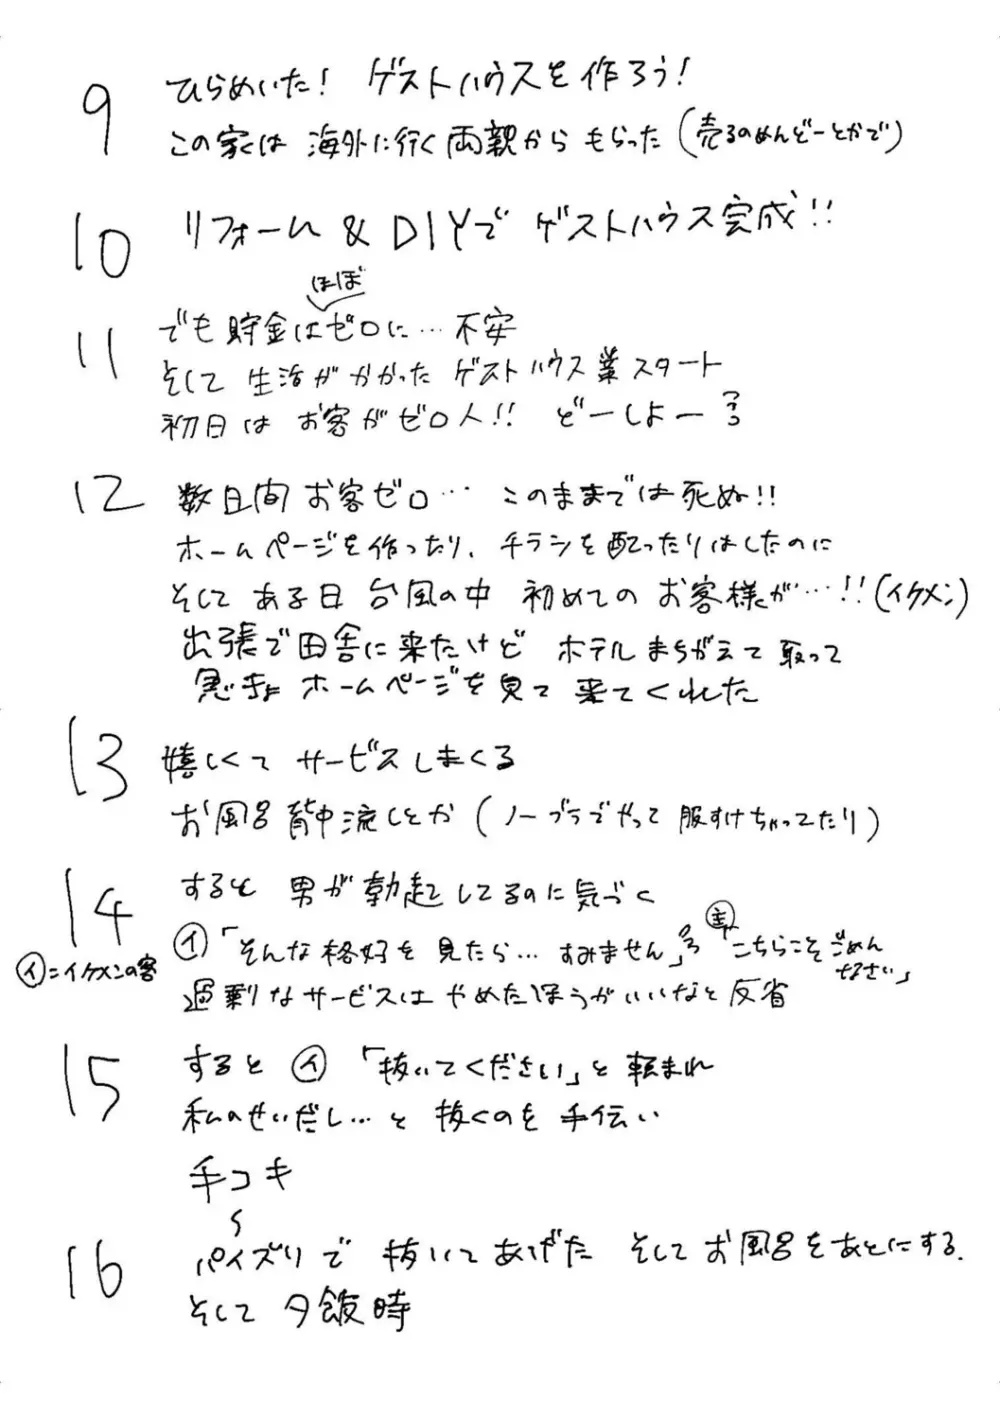 9 ひらめいた! ゲストハウスを作ろう!
この家は 海外に行く両親から もらった (売るのめんどーとかで)
10 リフォーム & DIYで ゲストハウス完成!!
ほぼ
11 でも貯金はゼロに…不安
そして 生活がかかった ゲストハウス業スタート
初日は お客がゼロ人!! どーしよー
12 数日間 お客ゼロ… このままでは死ぬ!!
ホームページを作ったり、チラシを配ったりはしたのに
そして ある日 台風の中 初めての お客様が…!! (イケメン)
出張で田舎に来たけど ホテルまちがえて 取って
急きょ ホームページを見て 来てくれた
13 嬉しくて サービスしまくる
お風呂 背中流しとか (ノーブラでやって 服すけちゃってたり)
14 すると 男が勃起してるのに気づく
イ「そんな格好を見たら… すみません」 主「こちらこそごめん
なさい」
イ=イケメンの客
過剰なサービスは やめたほうがいいなと 反省
15 すると イ 「抜いてください」と 頼まれ
私のせいだし…と 抜くのを 手伝い
手コキ
16 パイズリで 抜いてあげた そしてお風呂をあとにする.
そして 夕飯時